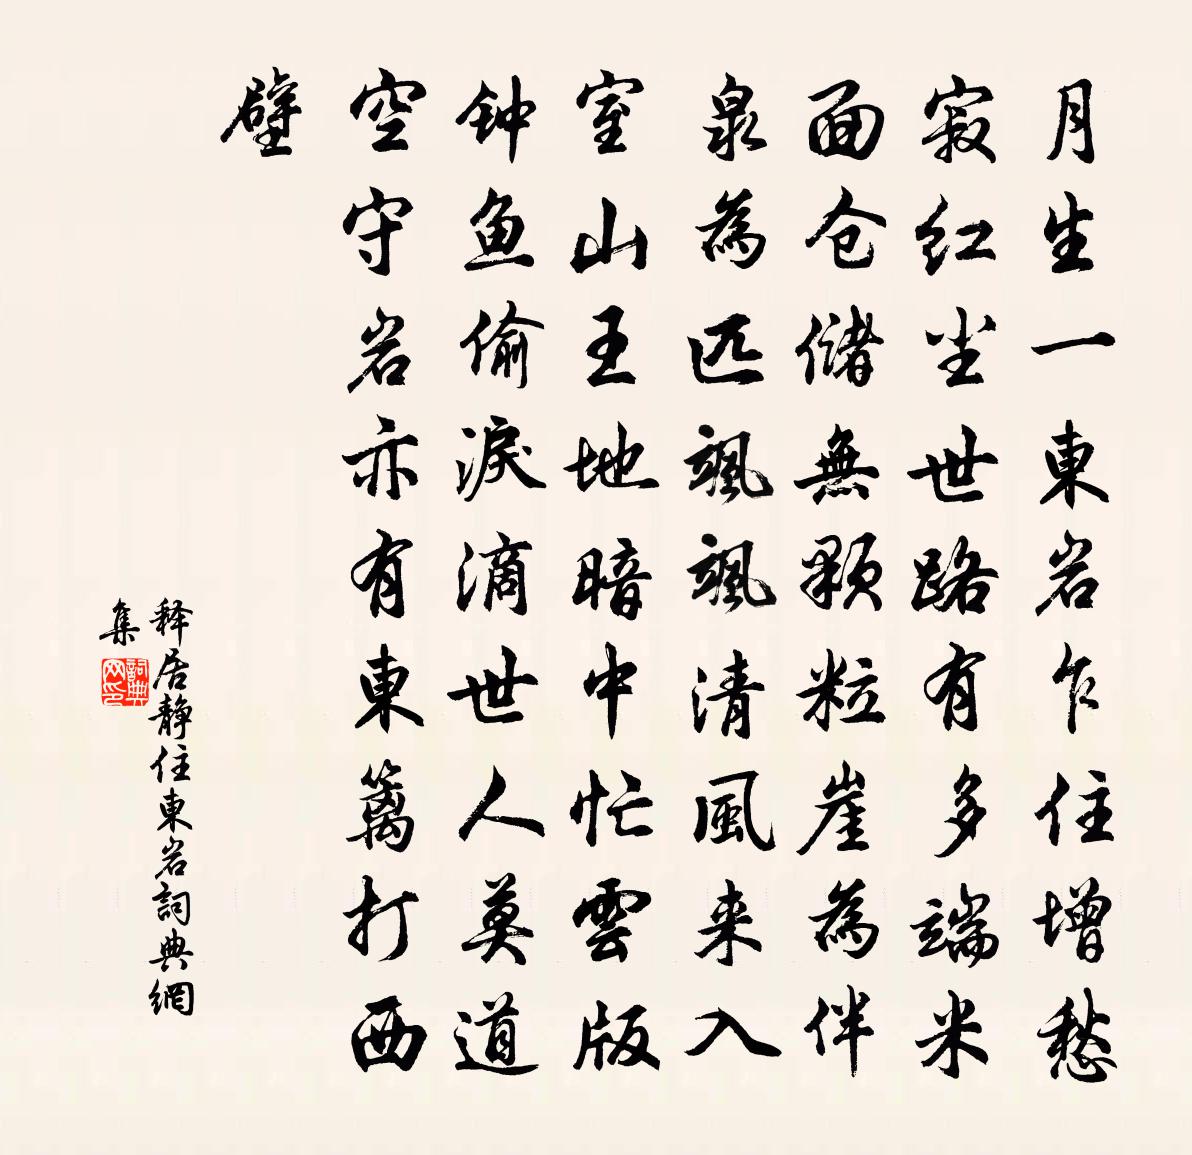 月生一東岩乍住增愁
寂红尘世路有多端米
面仓储無颗粒崖為伴
泉為匹飒飒清風来入
室山王地暗中忙雲版
钟鱼偷淚滴世人莫道
空守岩亦有東篱打西
壁
释居静住東岩詞典網
集
詞典
网印